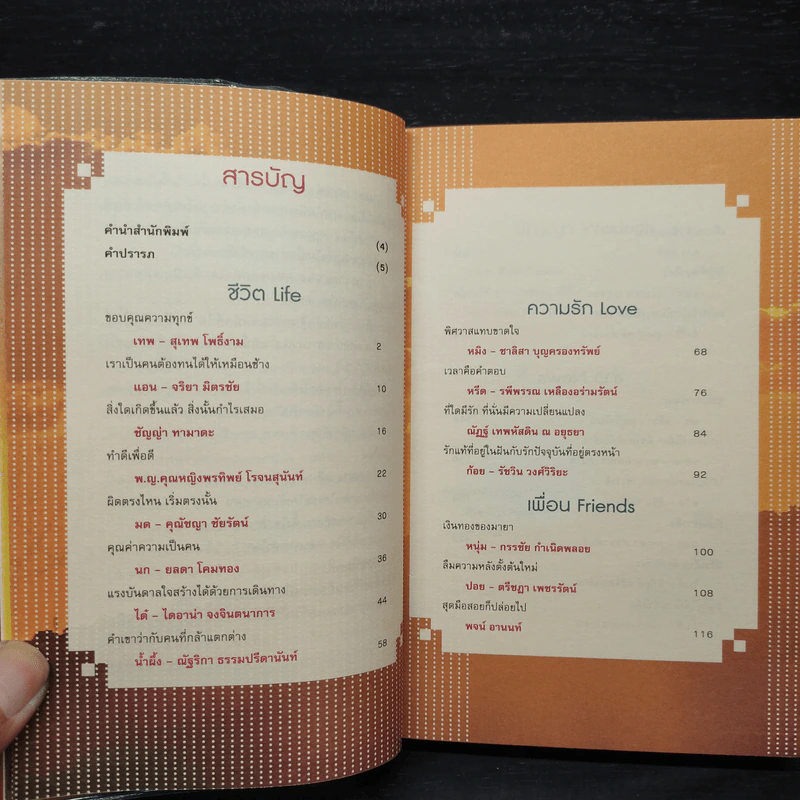 สารบัญ
คำนำสำนักพิมพ์ (4)
คำปรารภ (5)
ชีวิต Life
ขอบคุณความทุกข์
เทพ – สุเทพ โพธิ์งาม 2
เราเป็นคนต้องทนได้ให้เหมือนช้าง
แอน – จริยา มิตรชัย 10
สิ่งใดเกิดขึ้นแล้ว สิ่งนั้นกำไรเสมอ
ชัญญ่า ทามาดะ 16
ทำดีเพื่อดี
พ.ญ.คุณหญิงพรทิพย์ โรจนสุนันท์ 22
ผิดตรงไหน เริ่มตรงนั้น
มด – คุณัชญา ชัยรัตน์ 30
คุณค่าความเป็นคน
นก – ยลดา โคมทอง 36
แรงบันดาลใจสร้างได้ด้วยการเดินทาง
ได๋ – ไดอาน่า จงจินตนาการ 44
คำเขาว่ากับคนที่กล้าแตกต่าง
น้ำผึ้ง – ณัฐริกา ธรรมปรีดานันท์ 58
ความรัก Love
พิศวาสแทบขาดใจ
หมิง – ชาลิสา บุญครองทรัพย์ 68
เวลาคือคำตอบ
หรีด – รพีพรรณ เหลืองอร่ามรัตน์ 76
ที่ใดมีรัก ที่นั่นมีความเปลี่ยนแปลง
ณัฏฐ์ เทพหัสดิน ณ อยุธยา 84
รักแท้ที่อยู่ในฝันกับรักปัจจุบันที่อยู่ตรงหน้า
ก้อย – รัชวิน วงศ์วิริยะ 92
เพื่อน Friends
เงินทองของมายา
หนุ่ม – กรรชัย กำเนิดพลอย 100
ลืมความหลังตั้งต้นใหม่
ปอย – ตรีชฎา เพชรรัตน์ 108
สุดมือสอยก็ปล่อยไป
พจน์ อานนท์ 116